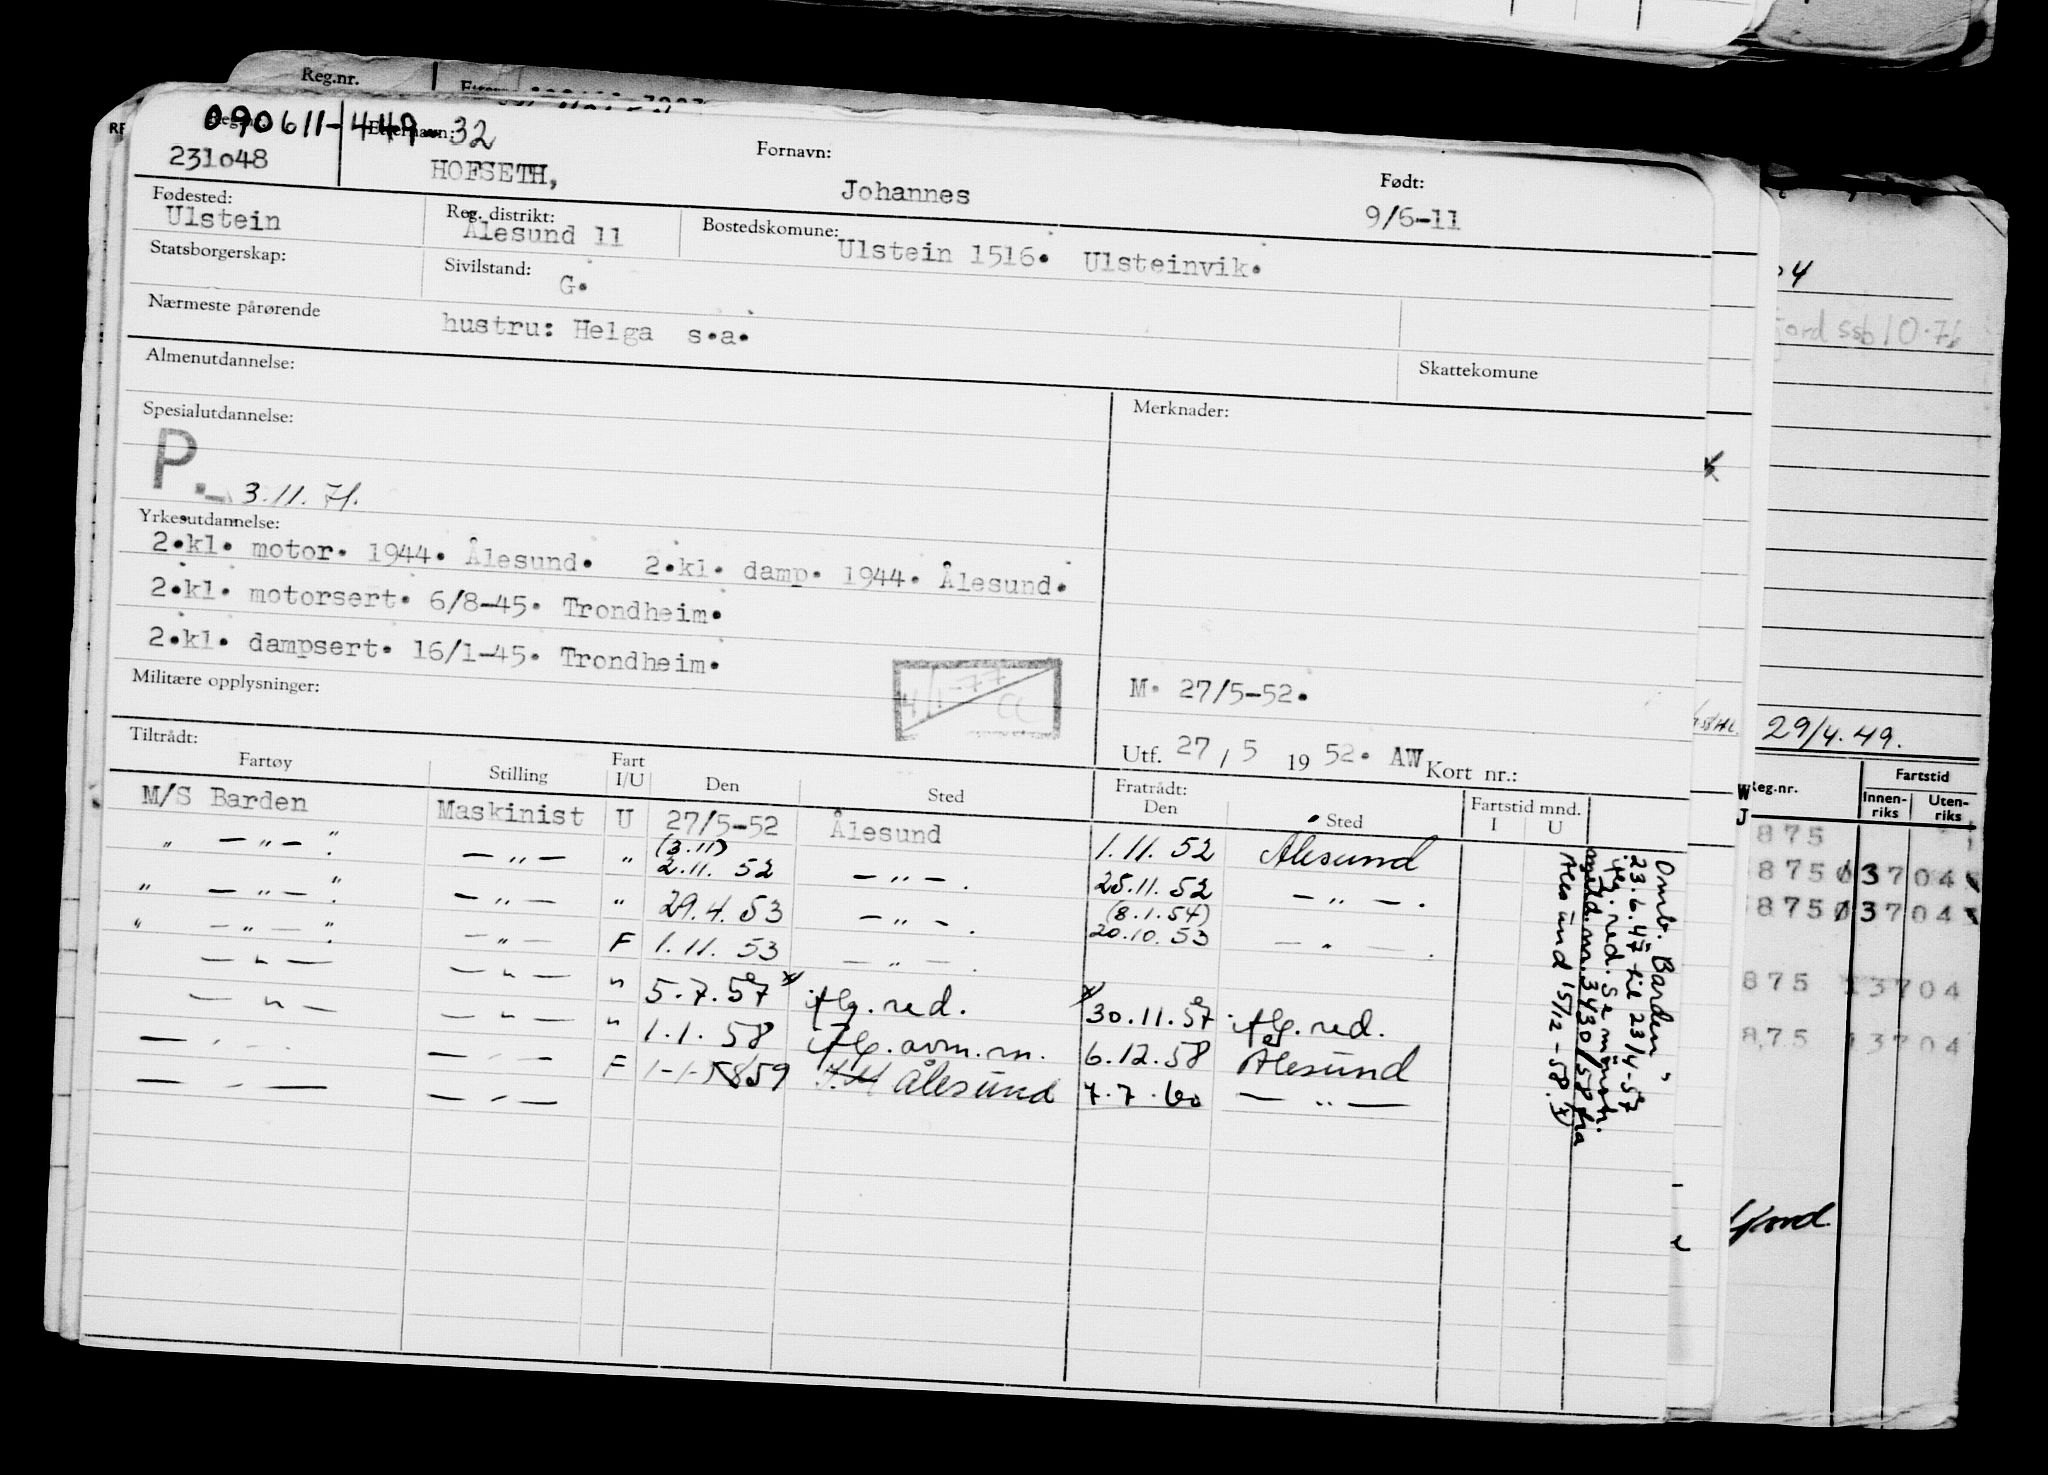 Reg.nr.
090611-449-32
Etternavn:
231048
HOFSETH,
Fornavn:
Johannes
Født:
9/6-11
Fødested:
Ulstein
Reg. distrikt:
Ålesund 11
Bostedskomune:
Ulstein 1516. Ulsteinvik.
Statsborgerskap:
Sivilstand:
G.
Nærmeste pårørende
hustru: Helga s.a.
Almenutdannelse:
Skattekomune
Spesialutdannelse:
Merknader:
P.
3.11.71.
Yrkesutdannelse:
2.kl. motor. 1944. Ålesund. 2.kl. damp. 1944. Ålesund.
2.kl. motorsert. 6/8-45. Trondheim.
2.kl. dampsert. 16/1-45. Trondheim.
Militære opplysninger:
4/1-77
CC
M. 27/5-52.
Utf. 27 / 5 19 52. AW Kort nr.:
Tiltrådt:
Fratrådt:
Fartøy Stilling Fart I/U Den Sted Den Sted Fartstid mnd. I U
M/S Barden Maskinist U 27/5-52 Ålesund 1.11.52 Ålesund
" — " — " — " — " (3.11) 2.11.52 — " — . 25.11.52 — " — .
" — " — " — " — " 29.4.53 — " — . (8.1.54) 20.10.53 — " — .
" — " — " — " — F 1.11.53 — " — .
— " — — " — " 5.7.57 x flg. red. x 30.11.57 flg. red.
— " — — " — " 1.1.58 flg. avm.m. 6.12.58 Ålesund
— " — — " — F 1-1-59 Ålesund 7.7.60 — " —
— " — — " —
Omb. "Barden"
23.6.47 til 23/4-57
flg. red. Se mønstr.
meld. nr. 3430/58 fra
Ålesund 15/12-58. x)
29/4.49.
Reg.nr.
Fartstid
Innen-
riks
Uten-
riks
875
875 3704
875 3704
875 13704
875 13704